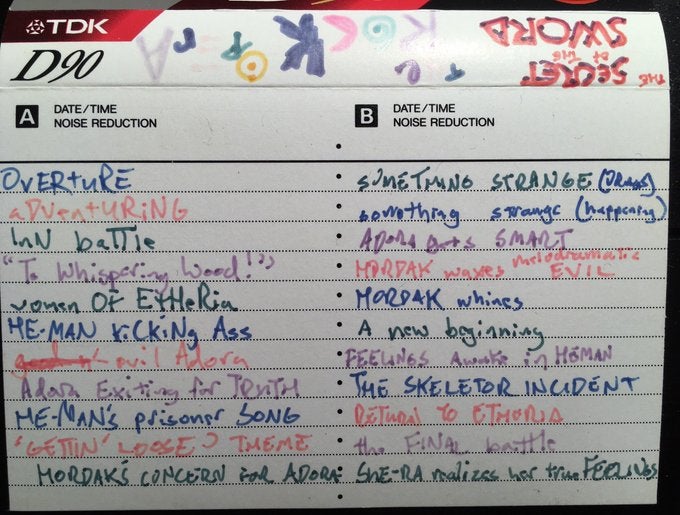 TDK
D90
A ROCK OPERA
THE SECRET OF THE SWORD
A DATE/TIME
NOISE REDUCTION
OVERtuRE
aDVentURiNG
INN baTTle
"To Whispering Wood!"
women OF EtHeRia
HE-MAN KiCKiNg Ass
evil Adora
Adora Exiting for TRUTH
HE-MAN'S prisoner SONG
'GETTIN' LOOSE' THEME
HORDAK'S CONCERN FOR ADORA
B DATE/TIME
NOISE REDUCTION
SOMETHING STRANGE
something strange (happening)
ADORA SMART
HORDAK waxes melodramatic EVIL
HORDAK whines
A new beginning
FEELINGS Awake in HEMAN
THE SKELETOR INCIDENT
RETURN TO ETHERIA
the FINAL battle
SHE-RA realizes her true FEELINGS